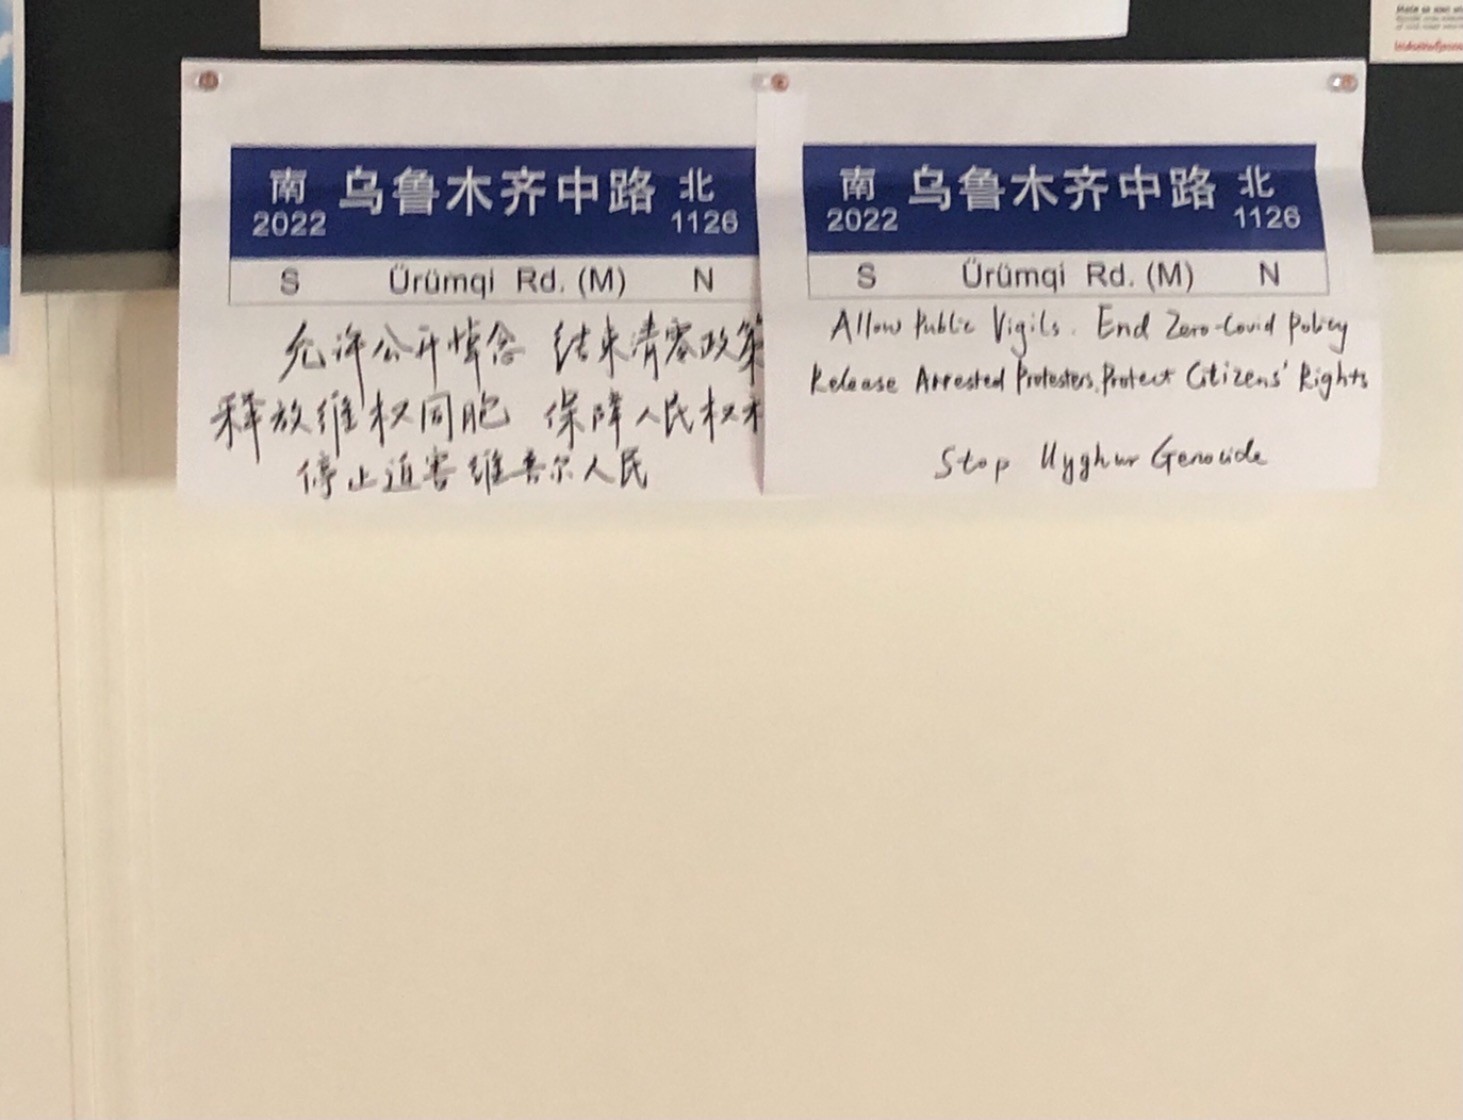 南 乌鲁木齐中路 北
2022 1126
S Ürümqi Rd. (M) N
允许公开悼念 结束清零政策
释放维权同胞 保障人民权
停止迫害维吾尔人民
南 乌鲁木齐中路 北
2022 1126
S Ürümqi Rd. (M) N
Allow Public Vigils. End Zero-Covid Policy
Release Arrested Protesters, Protect Citizens' Rights
Stop Uyghur Genocide